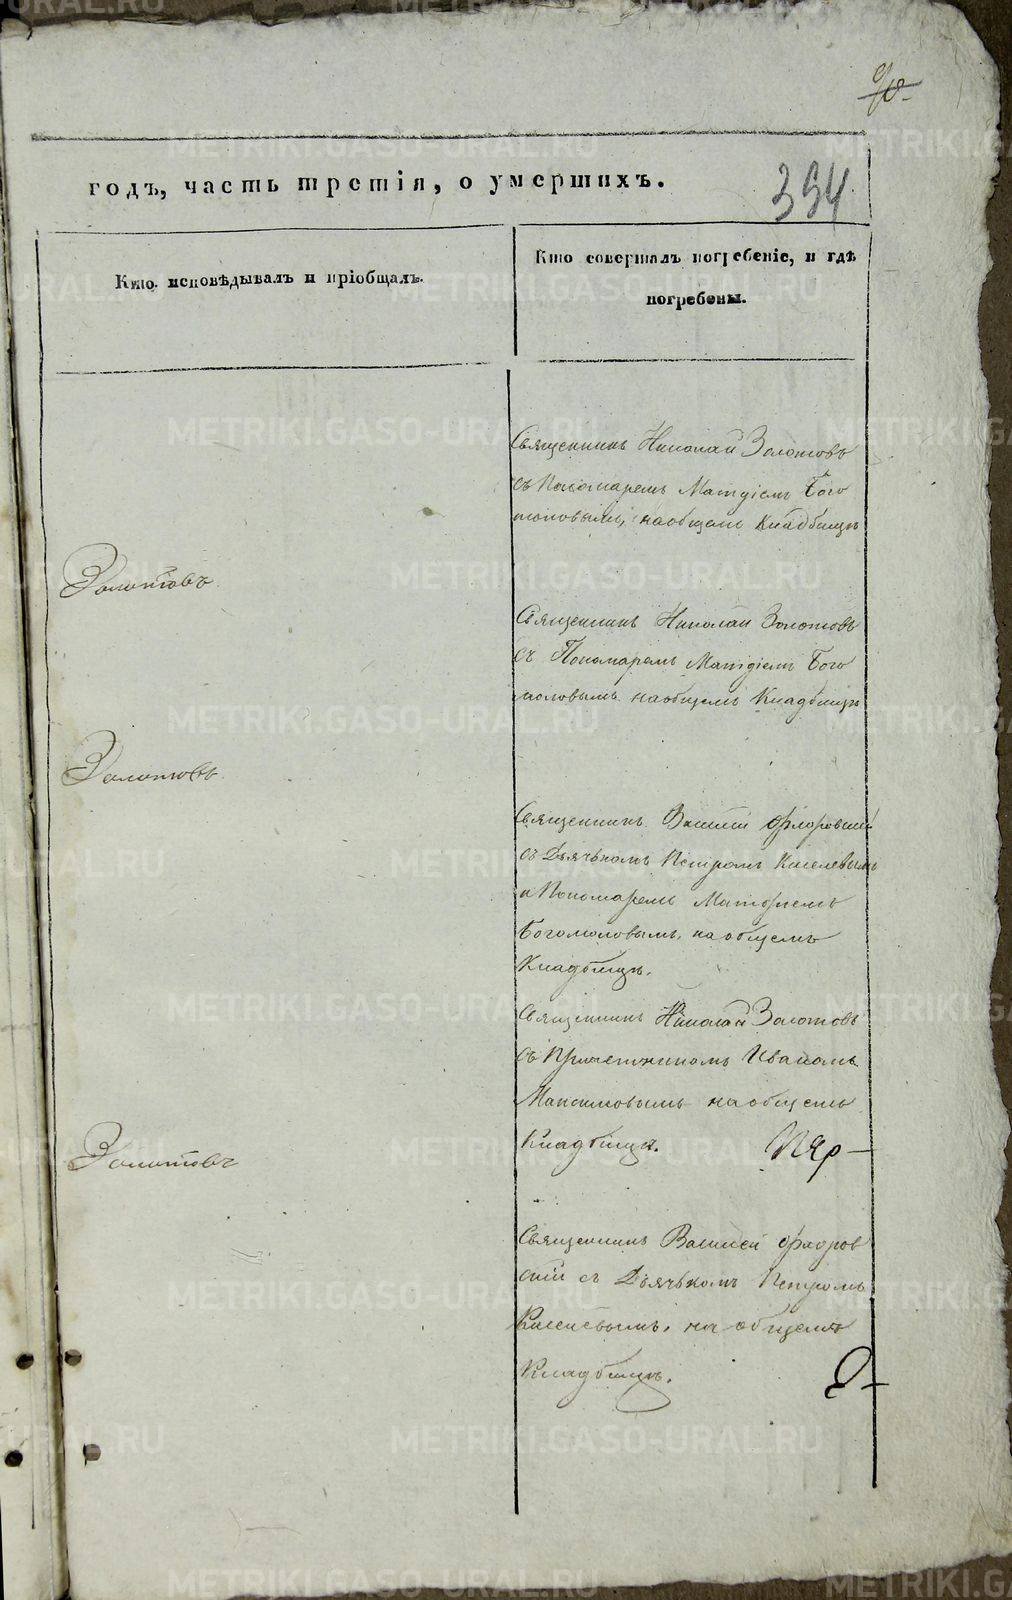 394
годъ, часть третія, о умершихъ.
Кто исповѣдывалъ и пріобщалъ.
Кто совершалъ погребеніе, и гдѣ
погребены.
Священникъ Николай Золотовъ
съ Пономаремъ Матѳіемъ Бого
моловымъ, на общемъ Кладбищѣ
Золотовъ
Священникъ Николай Золотовъ
съ Пономаремъ Матѳіемъ Бого
моловымъ на общемъ Кладбищѣ
Золотовъ
Священникъ Василій Флоровскій
съ Дьячькомъ Петромъ Киселевымъ
и Пономаремъ Матѳіемъ
Богомоловымъ, на общемъ
Кладбищѣ.
Священникъ Николай Золотовъ
съ Причетникомъ Иваномъ
Максимовымъ на общемъ
Кладбищѣ.
Золотовъ
Священникъ Василей Флоров
скій съ Дьячькомъ Петромъ
Киселевымъ, на общемъ
Кладбищѣ.
METRIKI.GASO-URAL.RU